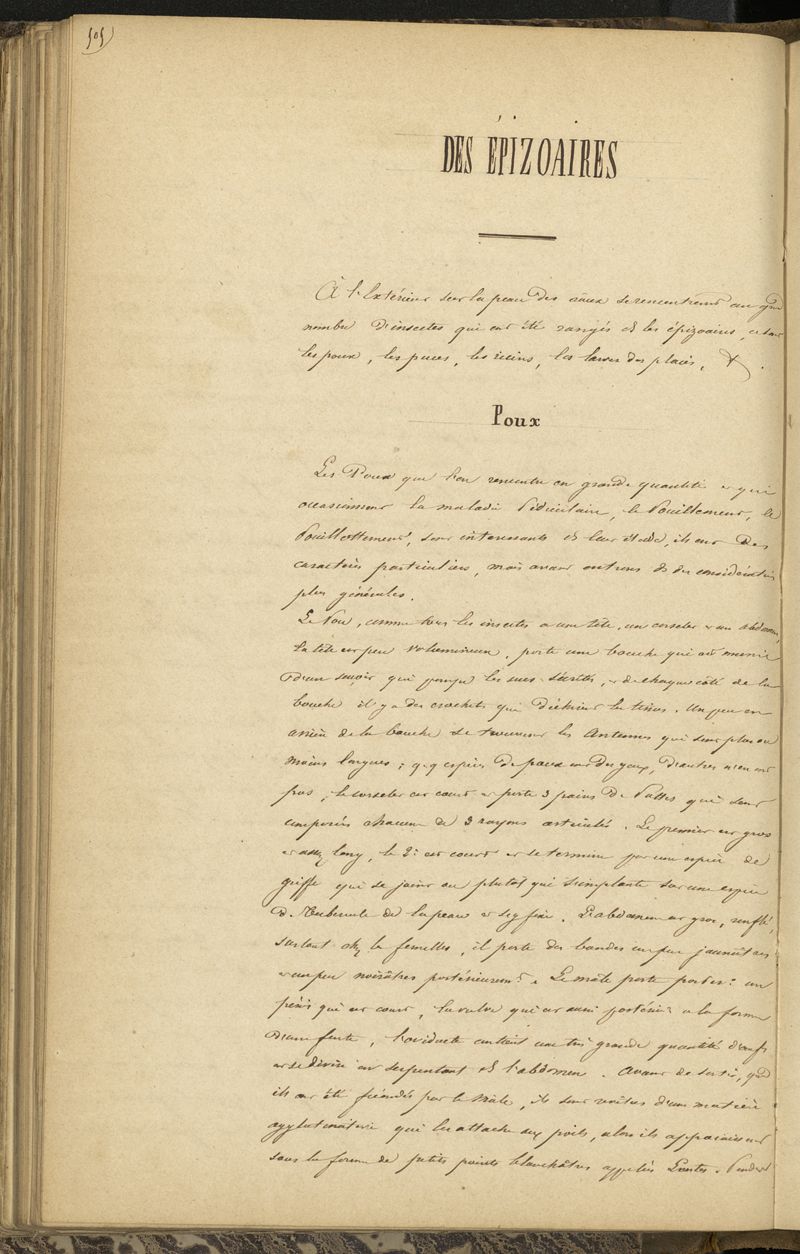 505)
DES ÉPIZOAIRES
À l'Extérieur sur la peau des serencontrent un gnd
nombre D'insectes qui ont été rangés ds les épizoaires, ce sont
les poux, les puces, les ricins, les larves des plaies, &.
Poux
Les Poux que l'on rencontre en grande quantité et qui
occasionnent la maladie Pédiculaire, le Pouillement, le
Pouillottement, sont interessants ds leur étude, ils ont Des
caractères particuliers, mais avant entrons ds des considérations
plus générales.
Le Pou, comme tous les insectes a une tête, un corselet et un abdomen,
la tête est peu volumineuse, porte une bouche qui est munie
D'un suçoir qui pompe les sucs sécrétés, et de chaque côté de la
bouche il y a des crochets qui Déchirent les tissus. Un peu en
arrière de la bouche se trouvent les Antennes qui sont plus ou
moins longues ; q.q espèces De poux ont Des yeux, D'autres n'en ont
pas, le corselet est court et porte 3 paires De Pattes qui sont
composées chacune de 3 rayons articulés. Le premier est gros
et assez long, le 2e est court et se termine par une espèce de
griffe qui se joint ou plutôt qui s'implante sur une espèce
De tubercule de la peau et s'y fixe. L'abdomen est gros, renflé,
surtout chez les femelles, il porte des bandes un peu jaunâtres
et un peu noirâtres postérieuremt. Le mâle porte poster: un
pénis qui est court, la vulve qui est aussi postérre a la forme
D'une fente, l'oviducte contient une très grande quantité d'œufs
et se dévie en serpentant ds l'abdomen. Avant de sortir, qd
ils ont été fécondés par le mâle, ils sont revêtus d'une matière
agglutinative qui les attache aux poils, alors ils apparaissent
sous la forme de petits points blanchâtres appelés Lentes. Pendant